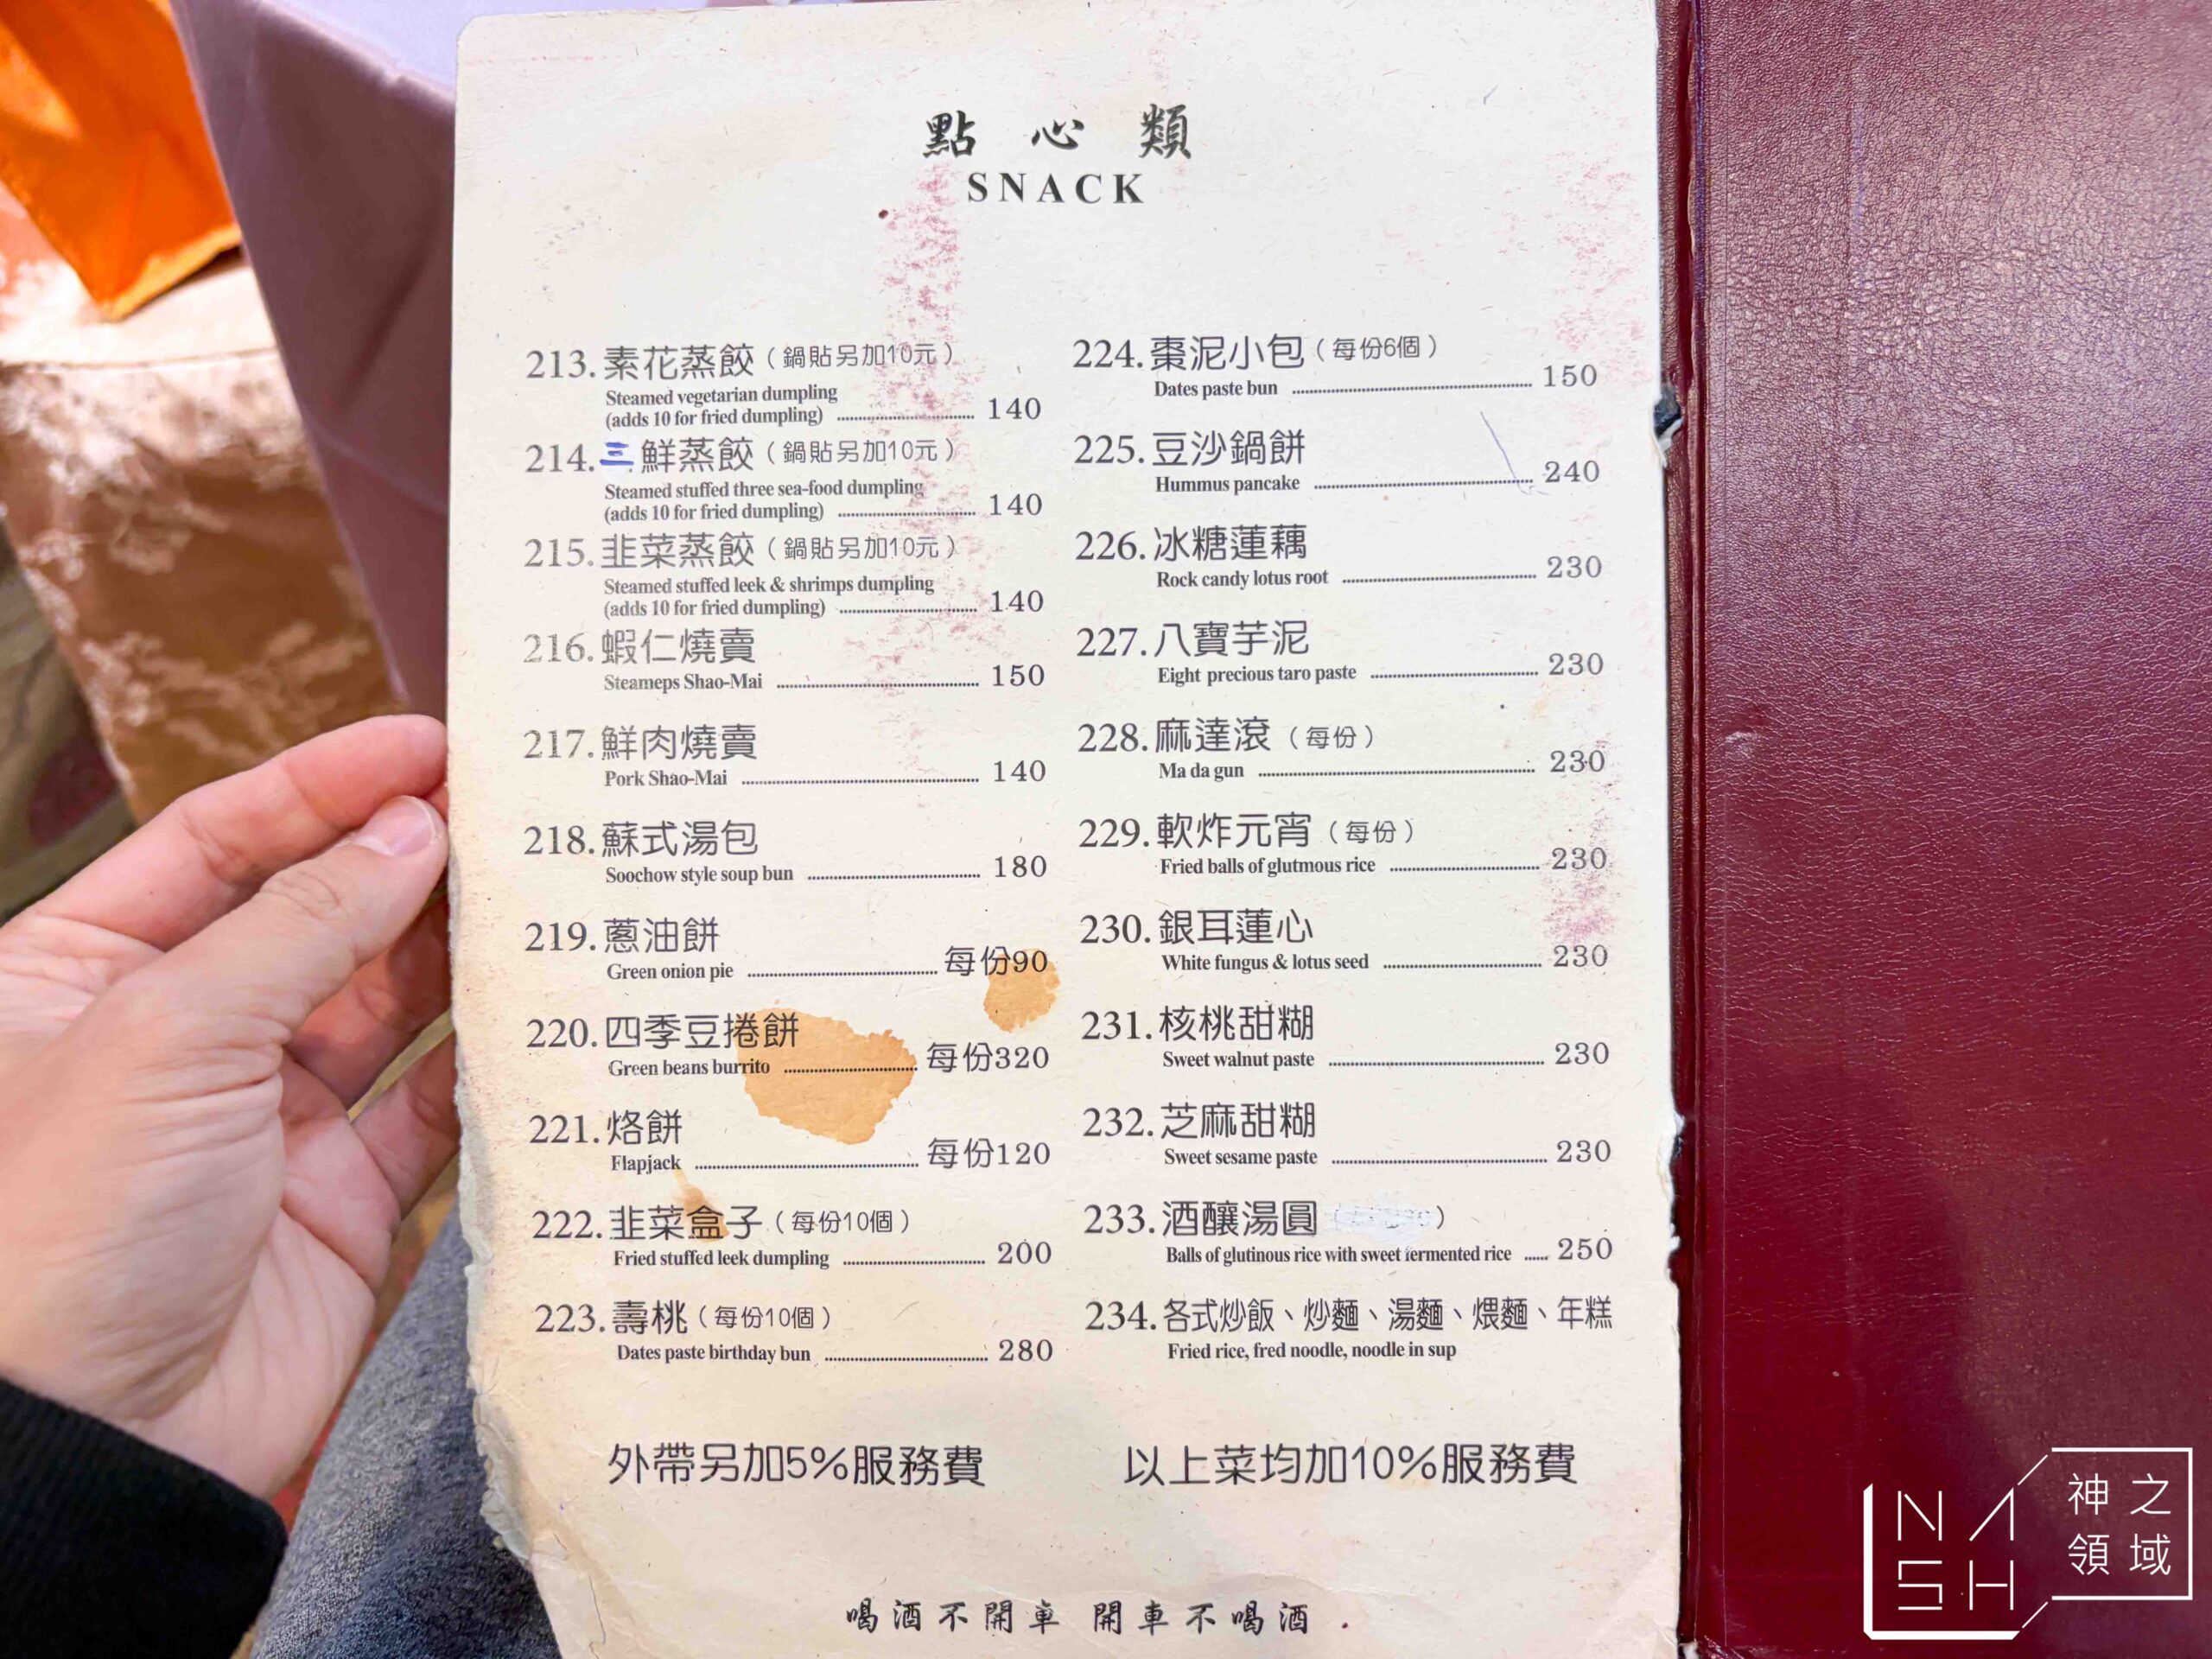 點心類
SNACK
213.素花蒸餃（鍋貼另加10元）
Steamed vegetarian dumpling
(adds 10 for fried dumpling) 140
214.三鮮蒸餃（鍋貼另加10元）
Steamed stuffed three sea-food dumpling
(adds 10 for fried dumpling) 140
215.韭菜蒸餃（鍋貼另加10元）
Steamed stuffed leek & shrimps dumpling
(adds 10 for fried dumpling) 140
216.蝦仁燒賣
Steameps Shao-Mai 150
217.鮮肉燒賣
Pork Shao-Mai 140
218.蘇式湯包
Soochow style soup bun 180
219.蔥油餅
Green onion pie 每份90
220.四季豆捲餅
Green beans burrito 每份320
221.烙餅
Flapjack 每份120
222.韭菜盒子（每份10個）
Fried stuffed leek dumpling 200
223.壽桃（每份10個）
Dates paste birthday bun 280
224.棗泥小包（每份6個）
Dates paste bun 150
225.豆沙鍋餅
Hummus pancake 240
226.冰糖蓮藕
Rock candy lotus root 230
227.八寶芋泥
Eight precious taro paste 230
228.麻達滾（每份）
Ma da gun 230
229.軟炸元宵（每份）
Fried balls of glutmous rice 230
230.銀耳蓮心
White fungus & lotus seed 230
231.核桃甜糊
Sweet walnut paste 230
232.芝麻甜糊
Sweet sesame paste 230
233.酒釀湯圓
Balls of glutinous rice with sweet fermented rice 250
234.各式炒飯、炒麵、湯麵、煨麵、年糕
Fried rice, fred noodle, noodle in sup
外帶另加5%服務費
以上菜均加10%服務費
喝酒不開車 開車不喝酒
NASH
神之
領域